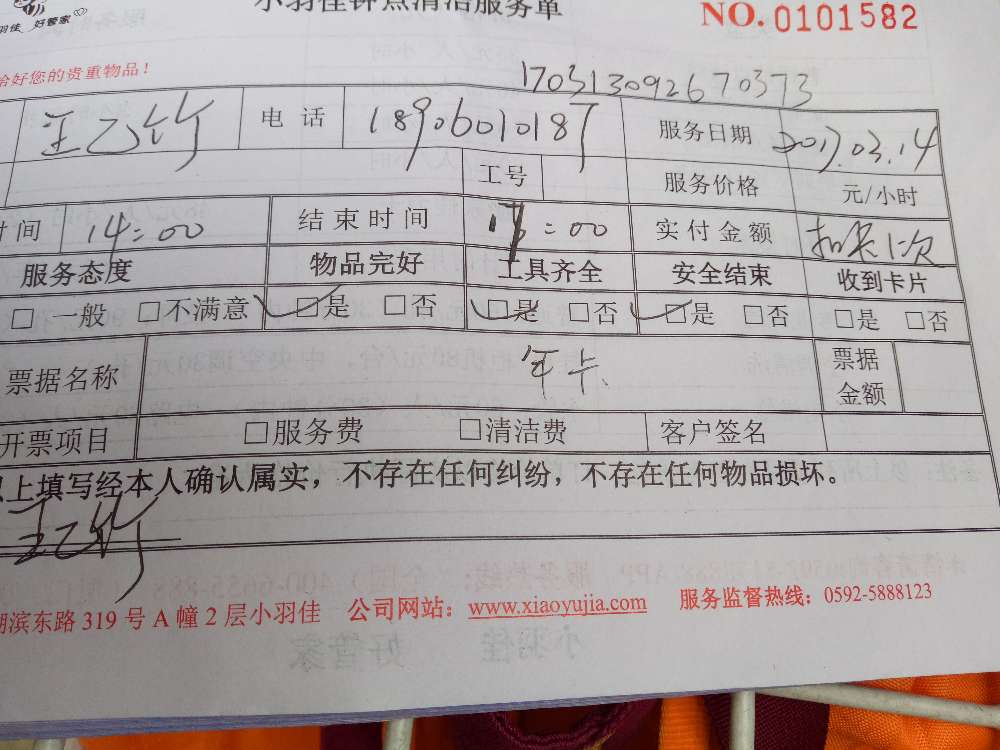 小羽佳钟点清洁服务单
羽佳 好管家
NO. 0101582
您的贵重物品！
170313092670373
王乙竹 电话 18906010187 服务日期 2017.03.14
工号 服务价格 元/小时
时间 14:00 结束时间 :00 实付金额 扣卡1次
服务态度 物品完好 工具齐全 安全结束 收到卡片
□一般 □不满意 ☑是 □否 ☑是 □否 ☑是 □否 □是 □否
票据名称 年卡. 票据金额
开票项目 □服务费 □清洁费 客户签名
以上填写经本人确认属实，不存在任何纠纷，不存在任何物品损坏。
王乙竹
湖滨东路 319 号 A 幢 2 层小羽佳 公司网站：www.xiaoyujia.com 服务监督热线：0592-5888123